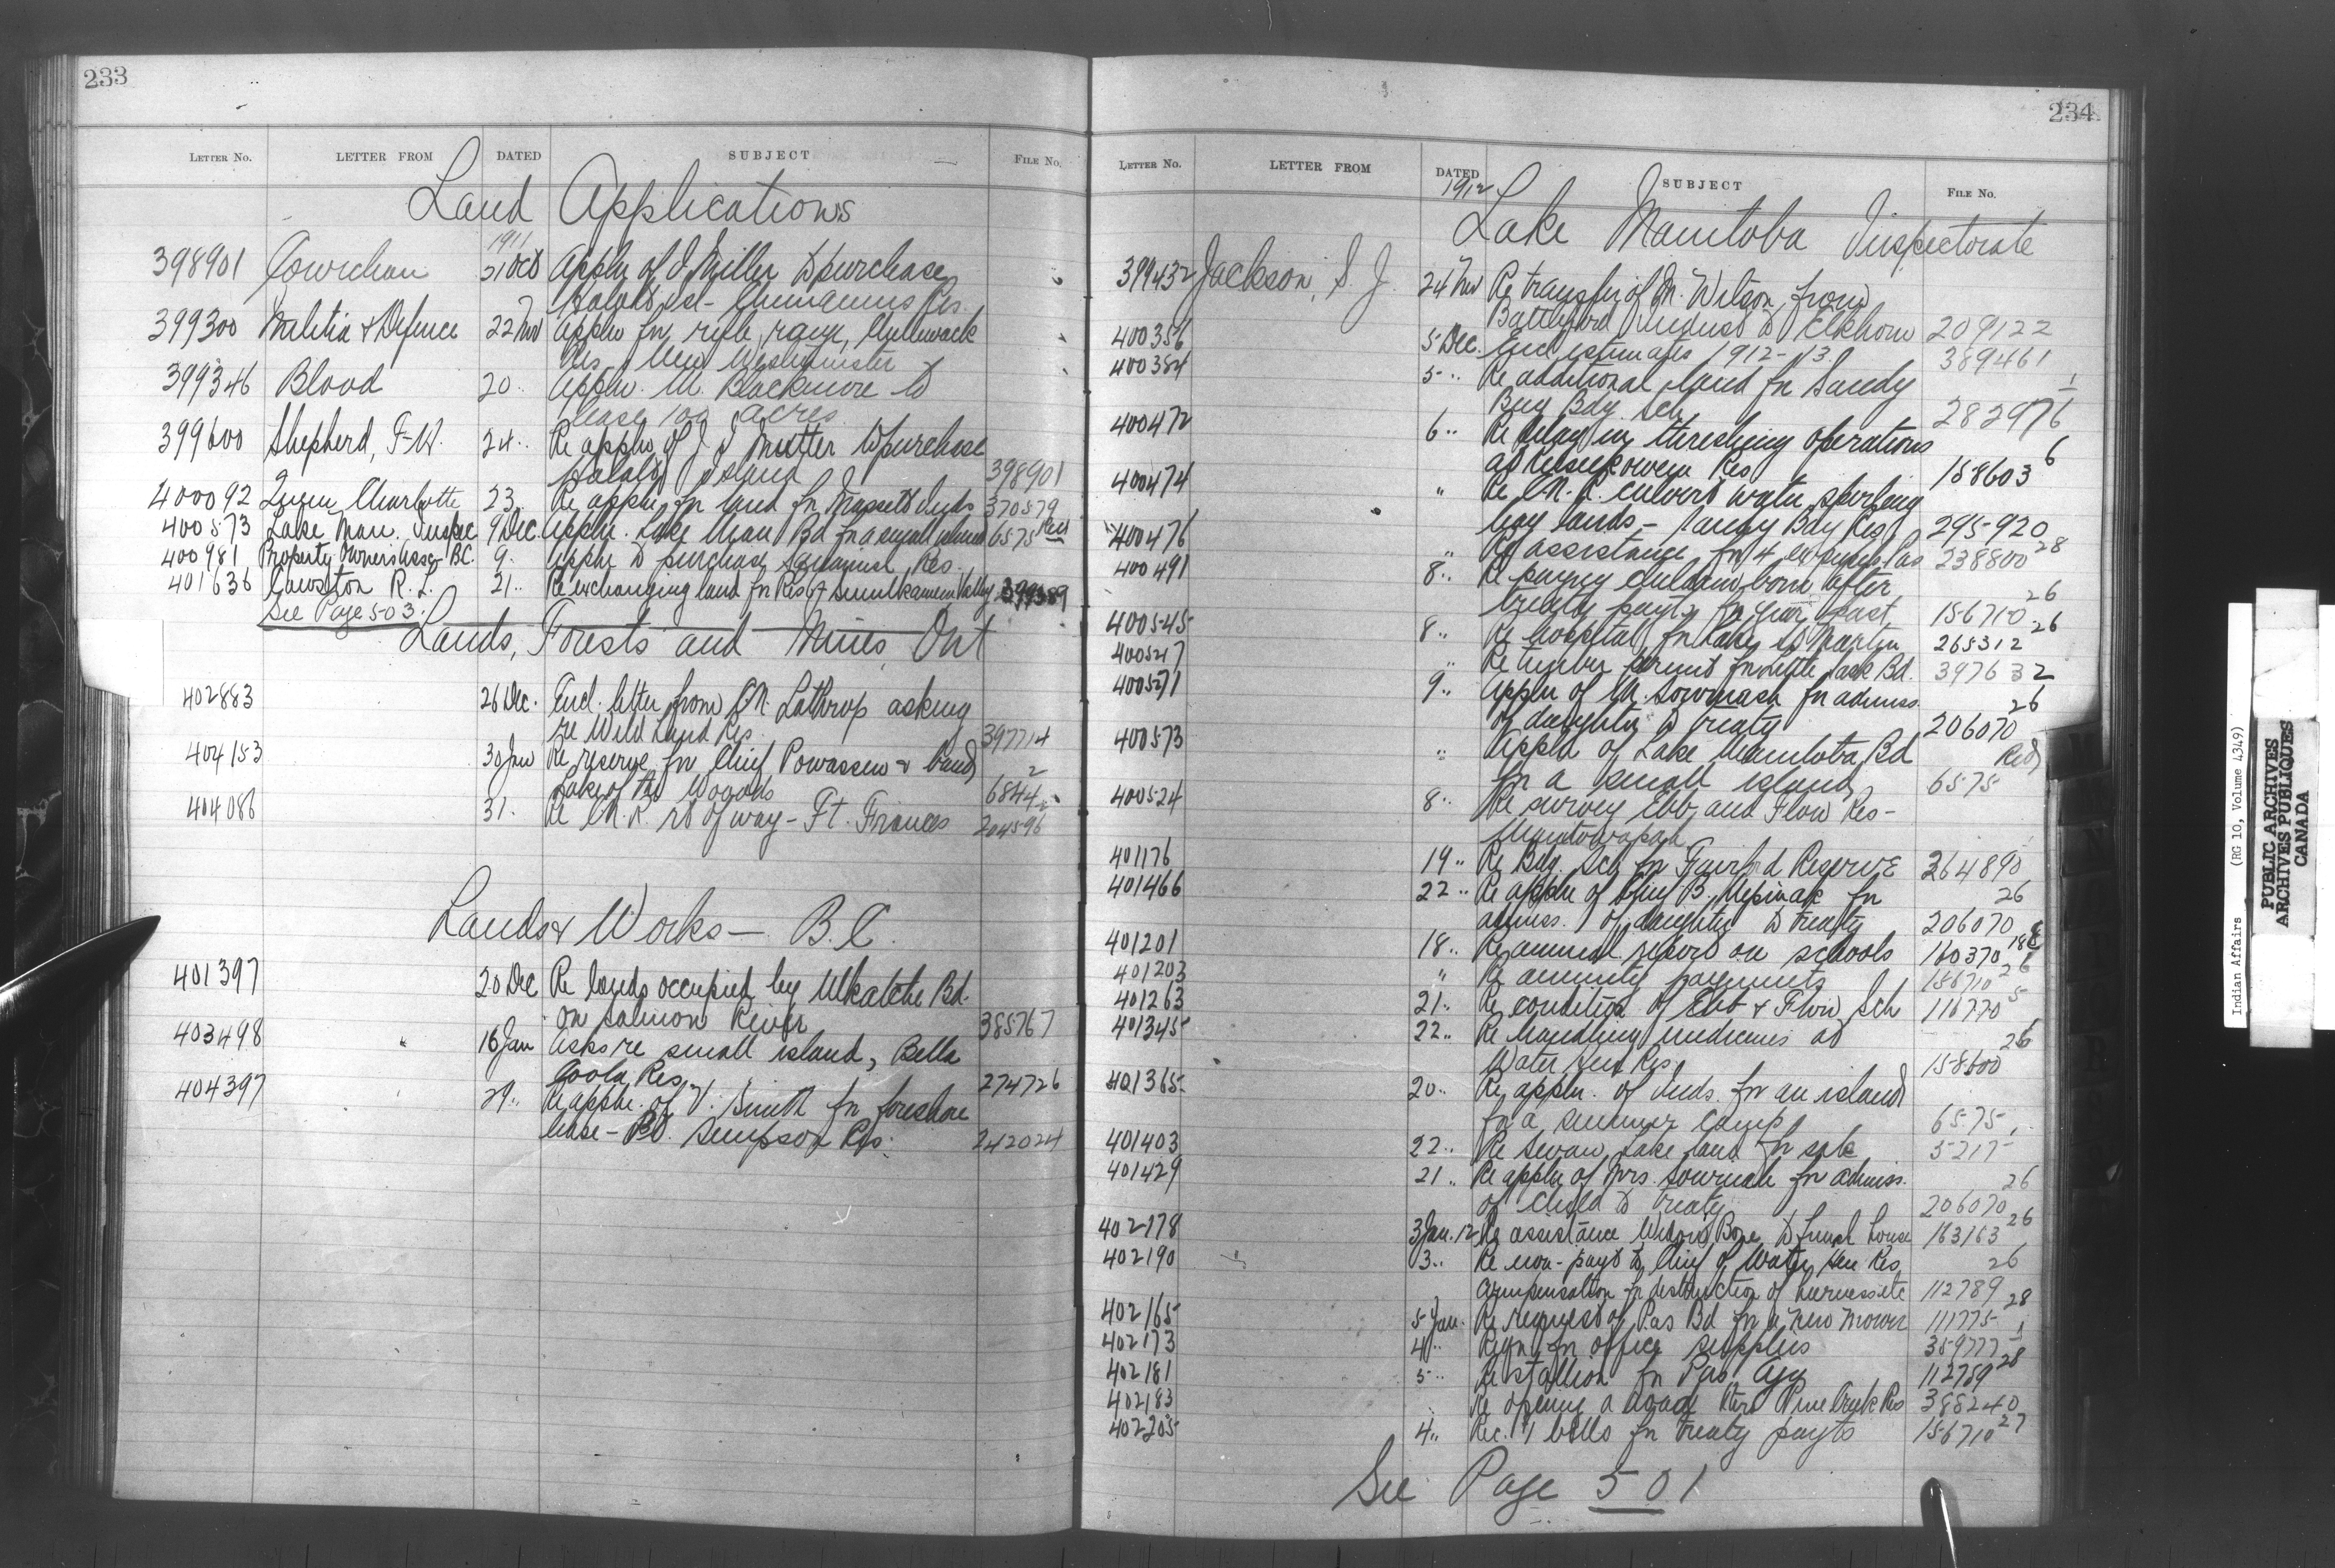 233
LETTER NO. LETTER FROM DATED SUBJECT FILE NO.
Land Applications
1911
398901 Cowichan 21 Oct Appln of J. Miller to purchase
Halalt Isl - Chemainus Res.
399300 Militia & Defence 22 Nov Appln for rifle range,
Res, New Westminster
399346 Blood 20 .. Appln. M. Blackmore to
lease 100 acres
399600 Shepherd, F.W. 24 .. Re appln of J. Mutter to purchase
Halalt Island 398901
400092 Queen Charlotte 23. Re appln for land for Massett Inds 370579
400573 Lake Man. Inspec 9 Dec. Appln. Lake Man Bd for a small island 6575 Red
400981 Property Owners Assn B.C. 9. Appln to purchase Res.
401636 Cawston R. L. 21 .. Re exchanging land for Res of Similkameen Valley
See Page 503.
Lands, Forests and Mines, Ont
402883 26 Dec. Encl. letter from M. Lathrop asking
re Wild Land Res. 397714
404153 30 Jan Re reserve for Chief Powassen & band,
Lake of the Woods 6844 2
404086 31. Re C.N.R. rt of way - Ft. Frances 204596
Lands & Works - B.C.
401397 20 Dec Re lands occupied by Ulkatcho Bd.
on Salmon River 385767
403498 16 Jan Asks re small island, Bella
Coola Res. 274726
404397 29 .. Re appln. of V. Smith for foreshore
lease - Pt. Simpson Res. 242024
234
LETTER NO. LETTER FROM DATED SUBJECT FILE NO.
1912
Lake Manitoba Inspectorate
399432 Jackson, S. J. 24 Nov Re transfer of M. Wilson from
Battleford Indust to Elkhorn 209122
400356 5 Dec. Encl estimates 1912-13. 389461
400384 5 .. Re additional land for Sandy
Bay Bdg. Sch 282976 1
400472 6 .. Re delay in threshing operations
at Res 158603 6
400474 " Re C.N.R. culvert water spoiling
hay lands - Sandy Bay Res 295920
400476 " Re assistance for 4 Pas 238800 28
400491 8 .. Re paying children born after
treaty payts for year past 156710 26
400545 8 .. Re hospital for Lake St Martin 265312 26
400547 " Re timber permit for Little Sask Bd. 397632
400571 9 .. Appln of M. for admiss.
of daughter to treaty 206070 26
400573 " Appln of Lake Manitoba Bd
for a small island 6575 Red
400524 8 .. Re survey Ebb and Flow Res -
401176 19 .. Re Bdg. Sch for Fairford Reserve 264890
401466 22 .. Re appln of for
admiss. of daughter to treaty 206070 26
401201 18 .. Re annual report on schools 160370
401203 " Re annuity payments 156710 26
401263 21 .. Re condition of Ebb & Flow Sch 116770 5
401345 22 .. Re handling medicines at
Water Hen Res. 158600 26
401365 20 .. Re appln. of Inds. for an island
for a summer camp 6575
401403 22 .. Re Swan Lake land for sale 5217
401429 21 .. Re appln of Mrs. for admiss.
of child to treaty 206070 26
402178 3 Jan. 12 Re assistance Widow Bone to finish house 163163 26
402190 3 .. Re non-payt to Chief of Water Hen Res
compensation for destruction of 112789 26
402165 5 Jan. Re request of Pas Bd for a new mower 111775 28
402173 4 .. Reqn for office supplies 359777 1
402181 5 .. Re stallion for Pas Agy 112789 28
402183 Re opening a road thro Pine Creek Res 388240
402205 4 .. Rec. 1 bills for treaty payts 156710 27
See Page 501
Indian Affairs (RG 10, Volume 4349)
PUBLIC ARCHIVES
ARCHIVES PUBLIQUES
CANADA